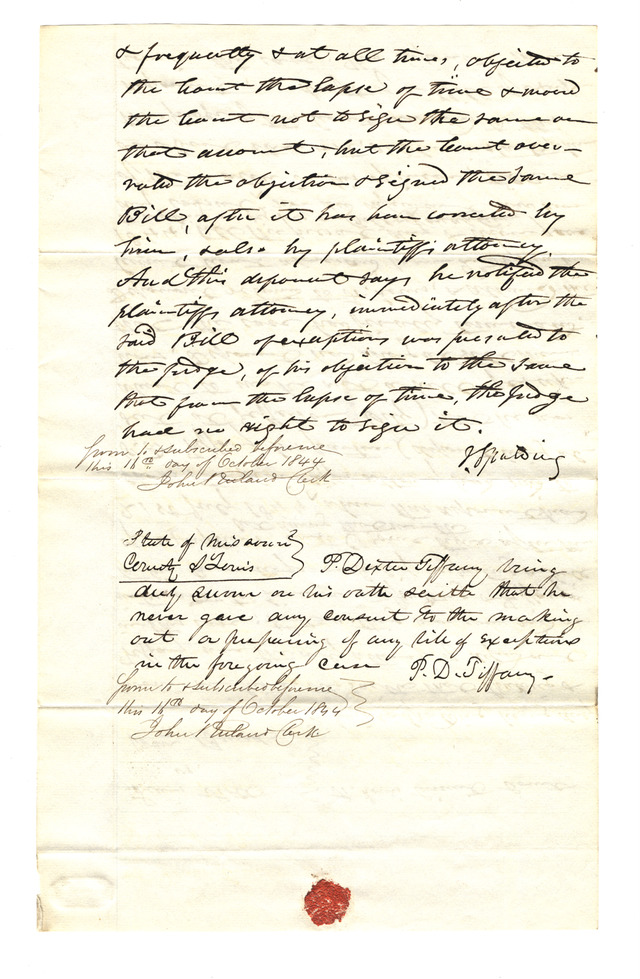 & frequently & at all times, objected to
the Court the lapse of time & moved
the Court not to sign the same on
that account, but the Court over-
ruled the objection & signed the same
Bill, after it has been corrected by
him, & also by plaintiffs attorney.
And this deponent says he notified the
plaintiffs attorney, immediately after the
said Bill of exceptions was presented to
the Judge, of his objection to the same
that from the lapse of time, the Judge
had no right to sign it.
Sworn to & subscribed before me
this 16th day of October 1844
J. Spalding
John Ruland Clerk
State of Missouri
County St Louis
P. Dexter Tiffany being
duly sworn on his oath saith that he
never gave any consent to the making
out or preparing of any bill of exceptions
in the foregoing case P. D. Tiffany -
Sworn to & subscribed before me
this 16th day of October 1844
John Ruland Clerk